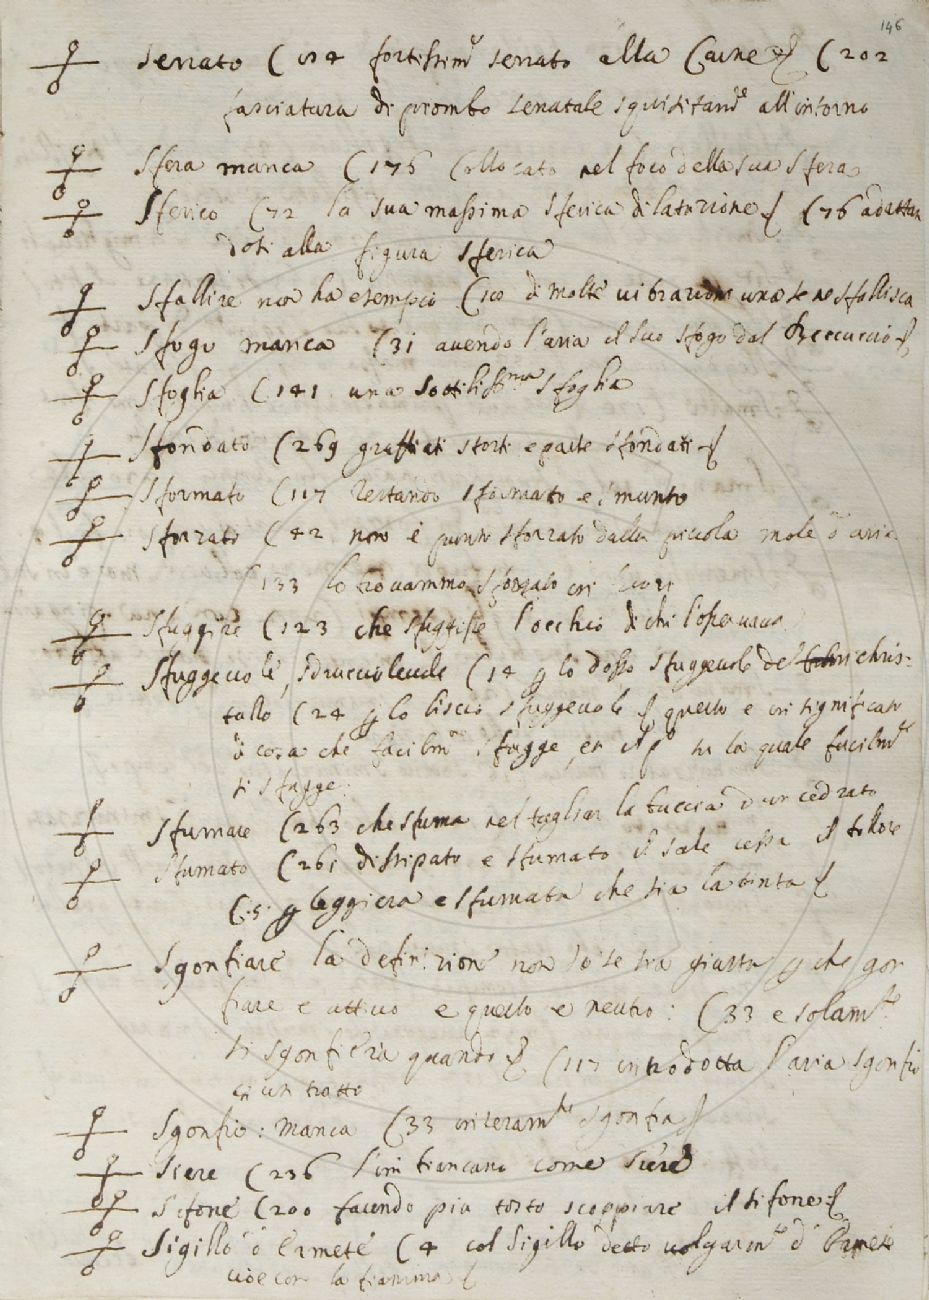 146
Serrato (114 fortissim.e serrato alla Carne (202
fasciatura di piombo serratale squisitam.te all'intorno
Sfera manca (175 Collocato nel foco della sua sfera
Sferico (72 la sua massima sferica dilatazione (76 adattan
dosi alla figura sferica
Sfallire non ha esempio (100 di molte vibrazioni una se ne sfallisca
Sfogo manca (31 avendo l'aria il suo sfogo dal Beccuccio
Sfoglia (141 una sottiliss.ma sfoglia
Sfondato (269 graffiati storti e parte sfondati
Sformato (117 restando sformato e smunto
Sforzato (42 non è punto sforzato dalla piccola mole d'aria
133 lo trovammo sforzato in fuori
Sfuggire (123 che sfuggisse l'occhio di chi l'osservava
Sfuggevole, sdrucciolevole (14 p lo dosso sfuggevole de chris-
tallo (24 p lo liscio sfuggevole questo è in significato
di cosa che facilm.te sfugge, et il p.o su la quale facilm.te
si sfugge.
Sfumare (263 che sfuma nel tagliar la buccia d'un cedrato
Sfumato (261 dissipato e sfumato il sale cessa il bollore
(.5. p leggiera e sfumata che sia la tinta
Sgonfiare la definizione non so se sia giusta p che gon
fiare è attivo e questo è neutro: (33 e solam.te
si sgonfierà quando (117 introdotta l'aria sgonfiò
in un tratto
Sgonfio: manca (33 interam.te sgonfia
Siere (236 come siere
Sifone (200 facendo più tosto scoppiare il sifone
Sigillo d'Ermete (4 col Sigillo detto volgarm.te d'Ermete
cioè con la fiamma